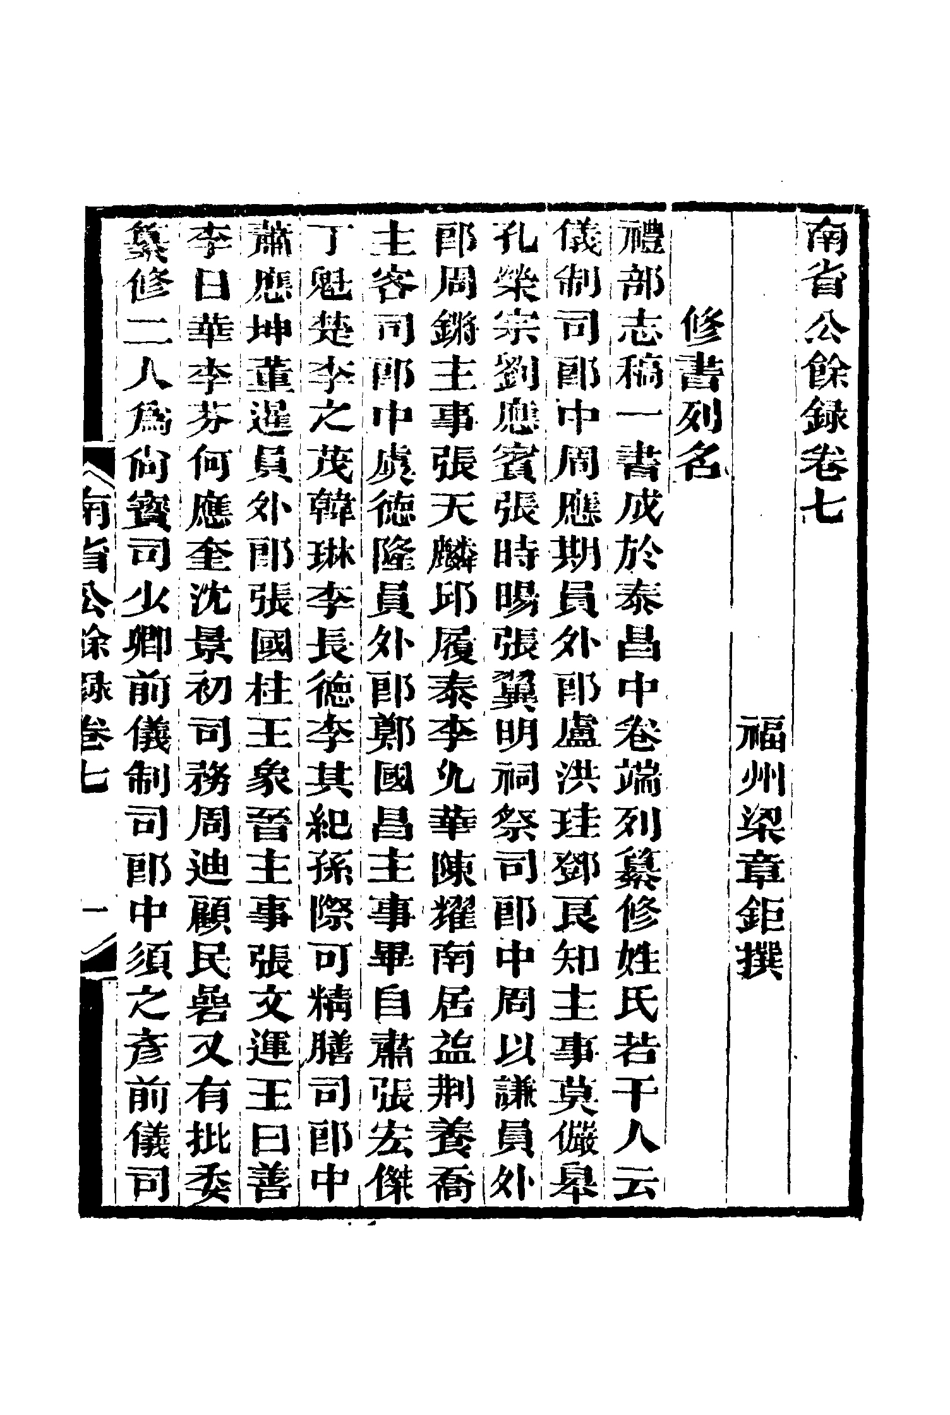 南省公餘録卷七
福州梁章鉅撰
修書列名
禮部志稿一書成於泰昌中卷端列纂修姓氏若干人云
儀制司郎中周應期員外郎盧洪珪鄧良知主事莫儼臯
孔榮宗劉應賓張時暘張翼明祠祭司郎中周以謙員外
郎周鏘主事張天麟邱履泰李九華陳耀南居益荆養喬
主客司郎中虞德隆員外郎鄭國昌主事畢自肅張宏傑
丁魁楚李之茂韓琳李長德李其紀孫際可精膳司郎中
蕭應坤董暹員外郎張國柱王象晉主事張文運王曰善
李日華李芬何應奎沈景初司務周迪顧民碞又有批委
纂修二人爲尙寶司少卿前儀制司郎中須之彥前儀司
南省公餘録卷七
一